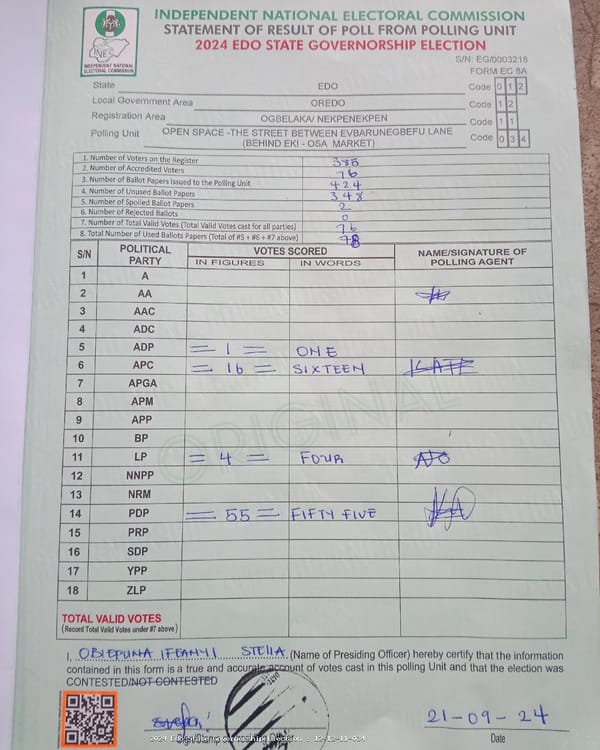 INDEPENDENT NATIONAL ELECTORAL COMMISSION
STATEMENT OF RESULT OF POLL FROM POLLING UNIT
2024 EDO STATE GOVERNORSHIP ELECTION
INEC
INDEPENDENT NATIONAL
ELECTORAL COMMISSION
S/N: EG/0003218
FORM EC 8A
State EDO Code 0 1 2
Local Government Area OREDO Code 1 2
Registration Area OGBELAKA/ NEKPENEKPEN Code 1 1
Polling Unit OPEN SPACE -THE STREET BETWEEN EVBARUNEGBEFU LANE Code 0 3 4
(BEHIND EKI - OSA MARKET)
1. Number of Voters on the Register 385
2. Number of Accredited Voters 76
3. Number of Ballot Papers Issued to the Polling Unit 424
4. Number of Unused Ballot Papers 348
5. Number of Spoiled Ballot Papers 2
6. Number of Rejected Ballots 0
7. Number of Total Valid Votes (Total Valid Votes cast for all parties) 76
8. Total Number of Used Ballots Papers (Total of #5 + #6 + #7 above) 78
S/N POLITICAL PARTY VOTES SCORED NAME/SIGNATURE OF POLLING AGENT
IN FIGURES IN WORDS
1 A
2 AA
3 AAC
4 ADC
5 ADP = 1 = ONE
6 APC = 16 = SIXTEEN KATE
7 APGA
8 APM
9 APP
10 BP
11 LP = 4 = FOUR
12 NNPP
13 NRM
14 PDP = 55 = FIFTY FIVE
15 PRP
16 SDP
17 YPP
18 ZLP
ORIGINAL
TOTAL VALID VOTES
(Record Total Valid Votes under #7 above)
I, OBIEPUNA IFEANYI STELLA (Name of Presiding Officer) hereby certify that the information
contained in this form is a true and accurate account of votes cast in this polling Unit and that the election was
CONTESTED/NOT CONTESTED
21-09-24
Date